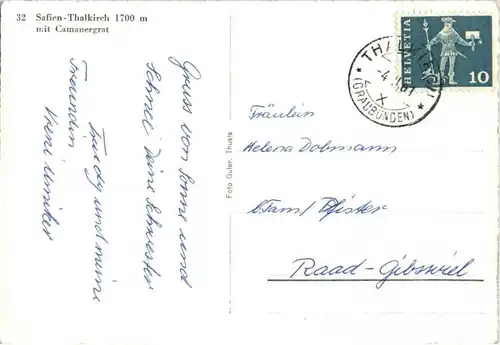 32 Safien-Thalkirch 1700 m
mit Camanergrat
Gruss von Sonne und
Schnee! Deine Schwester
Trudy und meine
Freundin
Vreni
Foto Guler, Thusis
HELVETIA
10
THALKIRCH
(GRAUBÜNDEN)
Fräulein
Helena Dolmann
b. Fam. Pfister
Raad-Gibswiel